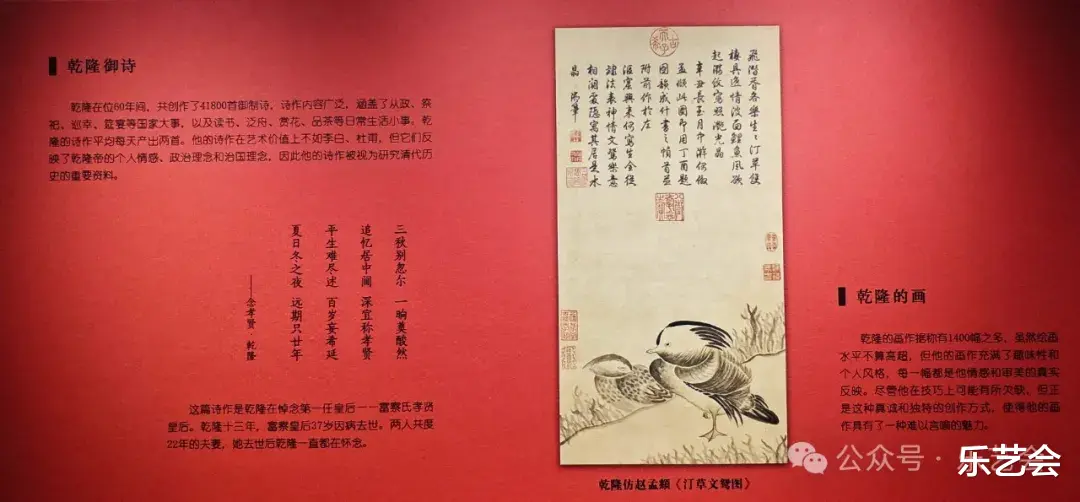 乾隆御诗
乾隆在位60年间，共创作了41800首御制诗，诗作内容广泛，涵盖了从政、祭
祀、巡幸、筵宴等国家大事，以及读书、泛舟、赏花、品茶等日常生活小事，乾
隆的诗作平均每天产出两首。他的诗作在艺术价值上不如李白、杜甫，但它们反
映了乾隆帝的个人情感、政治理念和治国理念，因此他的诗作被视为研究清代历
史的重要资料。
三狄别忽尔 一晌奠酸然
追忆居中阃 深宜称孝贤
平生难尽述 百岁妄希延
夏日冬之夜 远期只廿年
——念孝贤 乾隆
这篇诗作是乾隆在悼念第一任皇后——富察氏孝贤
皇后。乾隆十三年，富察皇后37岁因病去世。两人共度
22年的夫妻，她去世后乾隆一直都在怀念。
飛潛各樂生
棲具逸情波面鯉魚風欲
辛丑長至月中澣仿
孟頫此圖即用丁酉題
圖韻成什書之幀首並
附前作於左
興來仿寫生全從
乾隆仿赵孟頫《汀草文鸳图》
乾隆的画
乾隆的画作据称有1400幅之多，虽然绘画
水平不算高超，但他的画作充满了趣味性和
个人风格，每一幅都是他情感和审美的真实
反映。尽管他在技巧上可能有所欠缺，但正
是这种真诚和独特的创作方式，使得他的画
作具有了一种难以言喻的魅力。
公众号
乐艺会